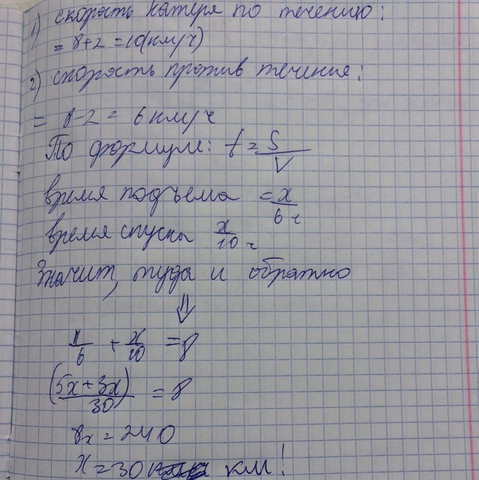 1) скорость катера по течению:
= 8+2 = 10(км/ч)
2) скорость против течения:
= 8-2 = 6 км/ч
По формуле: t = S/V
время подъема = x/6 ч
время спуска x/10 ч
Значит, туда и обратно
⇓
x/6 + x/10 = 8
(5x+3x)/30 = 8
8x = 240
x = 30 км!